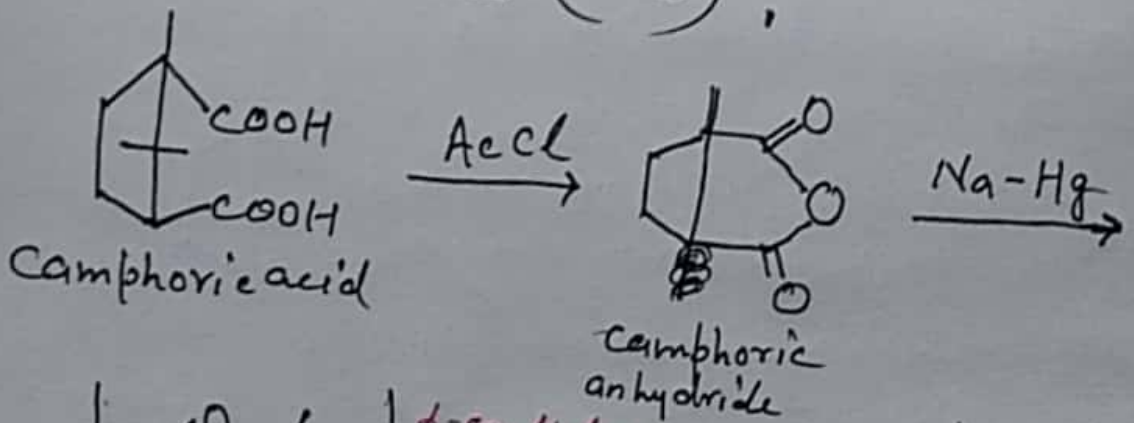 COOH
COOH
Camphoric acid
AcCl
O
O
O
Camphoric
anhydride
Na-Hg